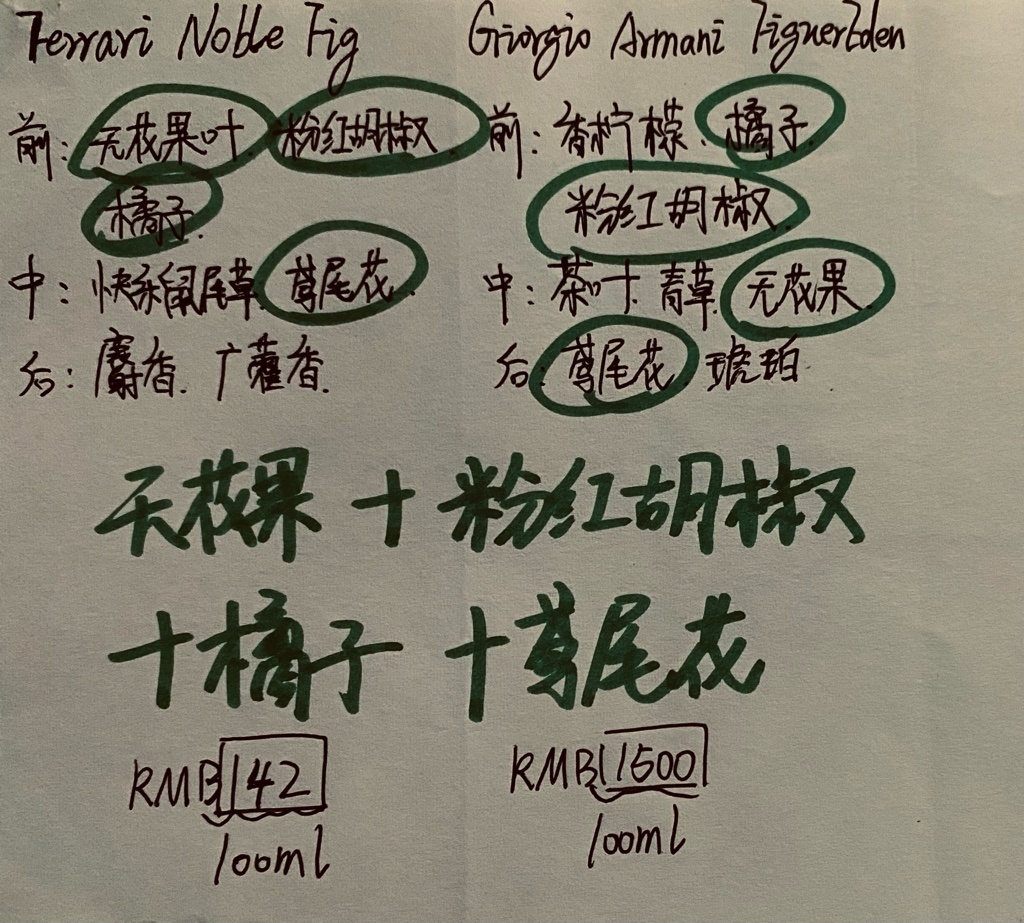 Ferrari Noble Fig
前: 无花果叶. 粉红胡椒
橘子.
中: 快乐鼠尾草. 鸢尾花.
后: 麝香. 广藿香.
Giorgio Armani FiguerEden
前: 香柠檬. 橘子.
粉红胡椒.
中: 茶叶. 青草. 无花果
后. 鸢尾花. 琥珀
无花果 + 粉红胡椒
+ 橘子 + 鸢尾花
RMB 142
100ml
RMB 1500
100ml